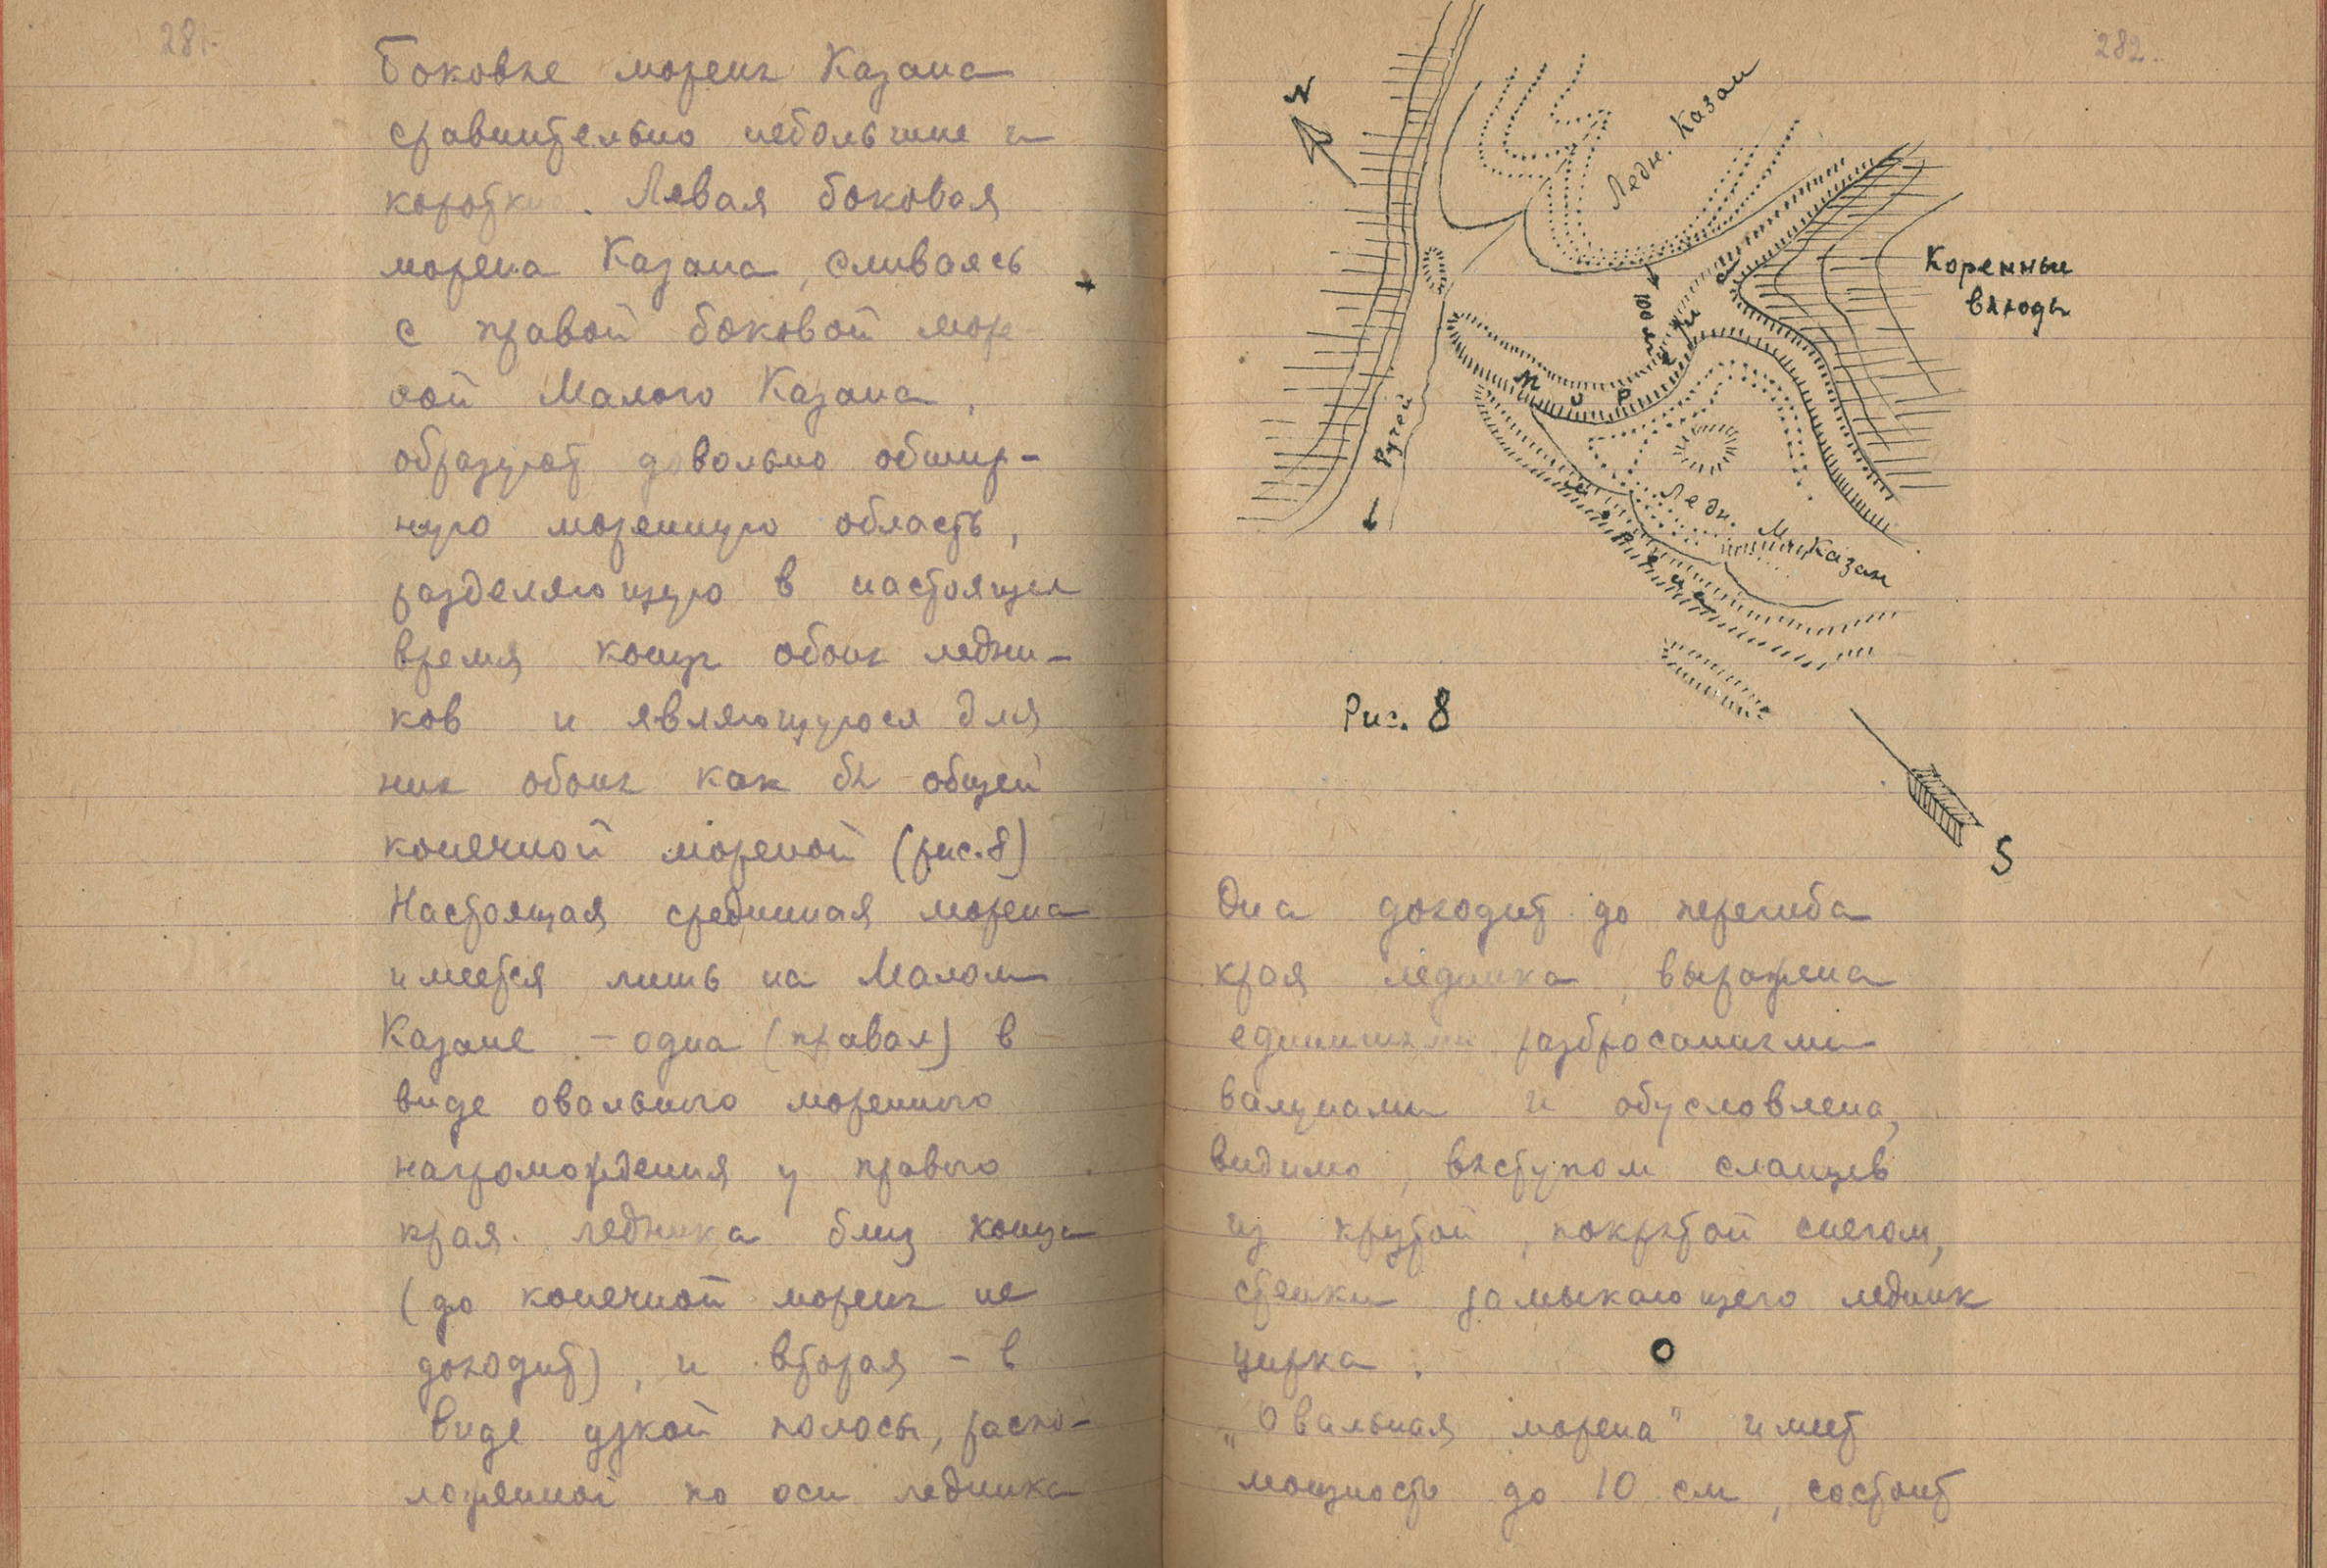 281.
Боковые морены Казана
сравнительно небольшие и
коротки. Левая боковая
морена Казана, сливаясь
с правой боковой мор
ной Малого Казана,
образуют довольно обшир-
ную моренную область,
разделяющую в настоящее
время концы обоих ледни-
ков и являющуюся для
них обоих как бы общей
конечной мореной (рис. 8)
Настоящая срединная морена
имеется лишь на Малом
Казане – одна (правая) в
виде овального моренного
нагромождения у правого
края ледника близ конца
(до конечной морены не
доходит), и вторая – в
виде узкой полосы, распо-
ложенной по оси ледника
282.
N
Ледн. Казан
Коренные
выходы
100 м
морена
Ручей
Ледн. М. Казан
морена
Рис. 8
S
Она доходит до перегиба
края ледника, выражена
единичными разбросанными
валунами и обусловлена,
видимо, выступом сланцев
из крутой, покрытой снегом,
стенки замыкающего ледник
цирка.
„Овальная морена" имеет
мощность до 10 см, состоит